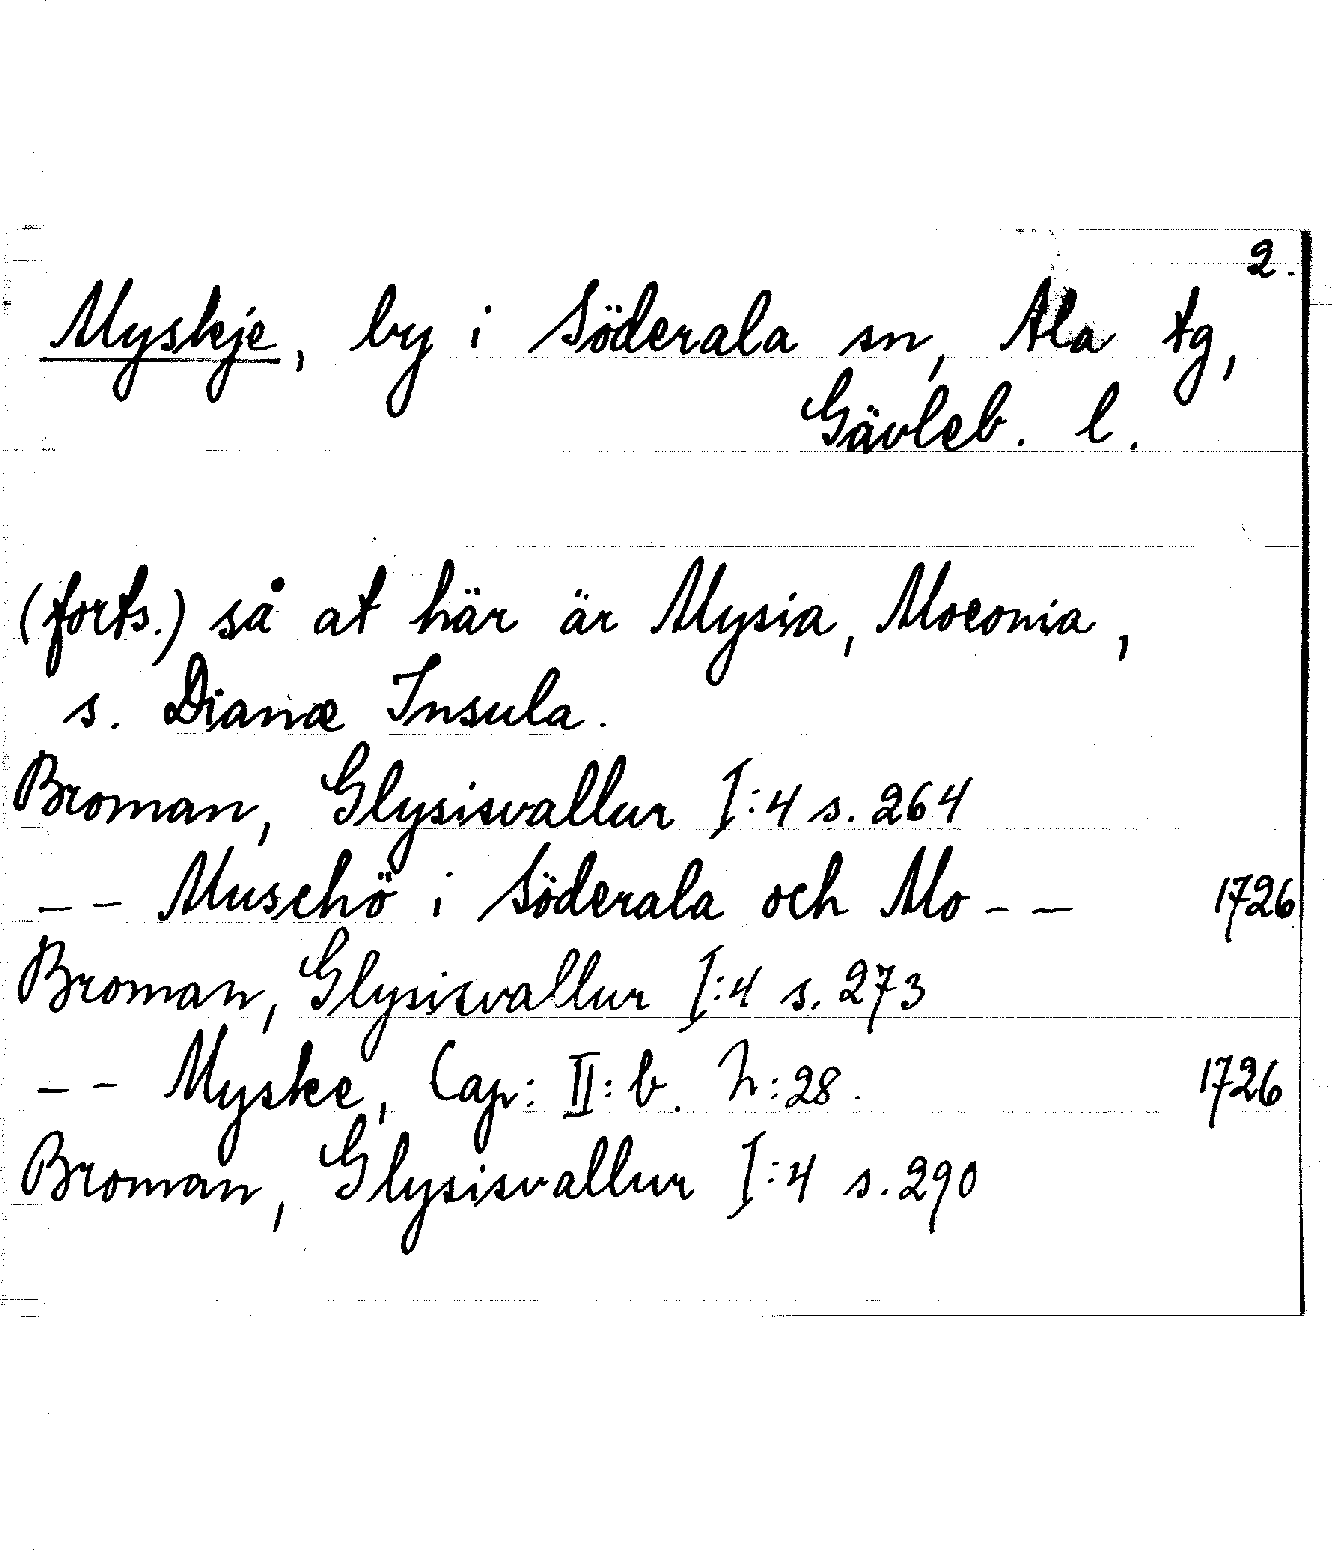 2.
Myskje, by i Söderala sn, Ala tg,
Gävleb. l.
(forts.) så at här är Mysia, Moeonia,
s. Dianæ Insula.
Broman, Glysisvallur I:4 s. 264
-- Muschö i Söderala och Mo -- 1726
Broman, Glysisvallur I:4 s. 273
-- Myske, Cap: II: b. h:28. 1726
Broman, Glysisvallur I:4 s. 290